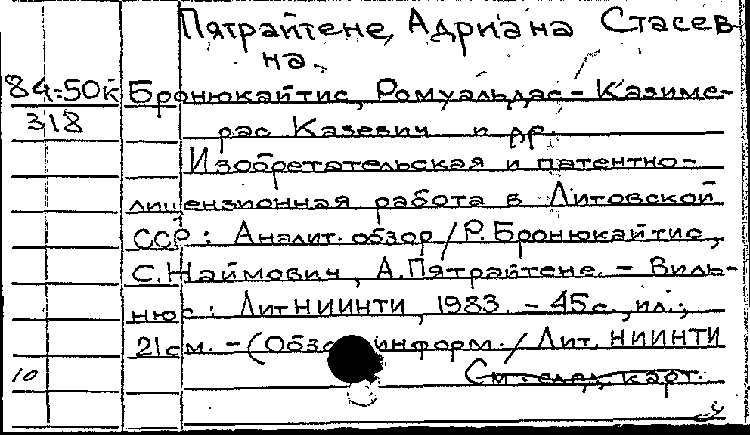 Пятрайтене, Адриана Стасев-
на.
84:50к Бронюкайтис, Ромуальдас-Казиме-
318 рас Казевич и др.
Изобретательская и патентно-
лицензионная работа в Литовской
ССР: Аналит. обзор / Р. Бронюкайтис,
С. Наймович, А. Пятрайтене. - Виль-
нюс: ЛитНИИНТИ, 1983. - 45с., ил.;
21см. - (Обзо информ. / Лит. НИИНТИ
10 См. след. карт.